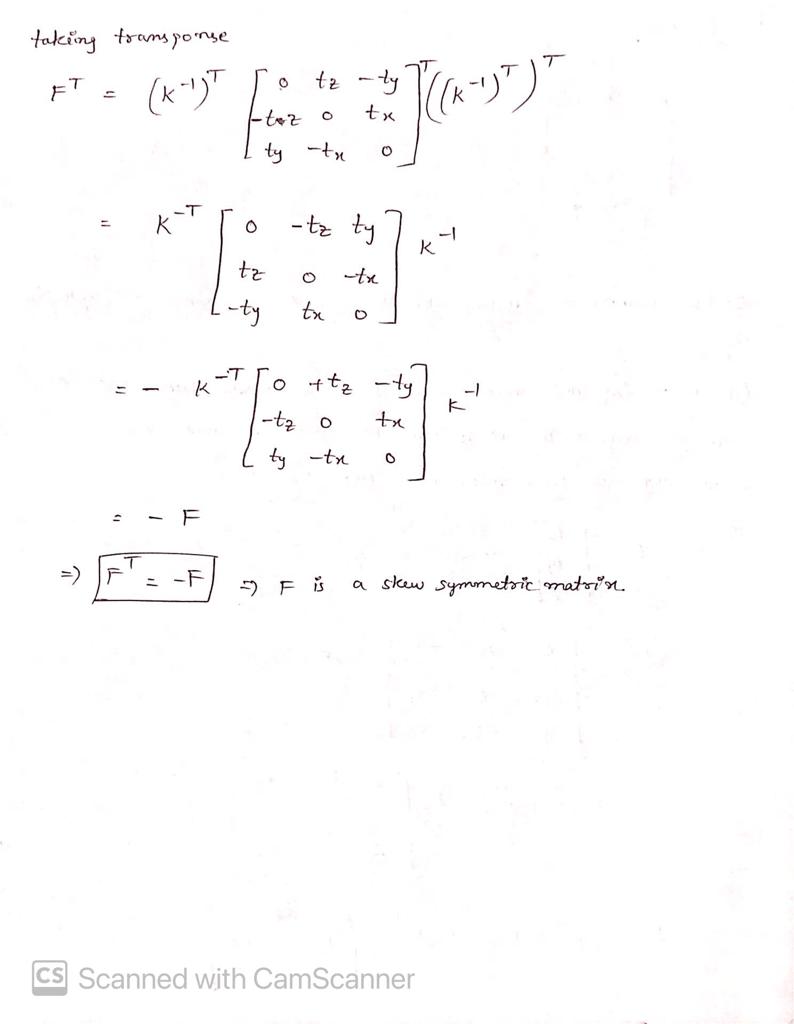 taking transponse
F^T = (K^-1)^T [ 0 tz -ty ]^T ((K^-1)^T)^T
-tz 0 tx
ty -tx 0
= K^-T [ 0 -tz ty ] K^-1
tz 0 -tx
-ty tx 0
= - K^-T [ 0 +tz -ty ] K^-1
-tz 0 tx
ty -tx 0
= - F
=> F^T = -F => F is a skew symmetric matrix.
CS Scanned with CamScanner